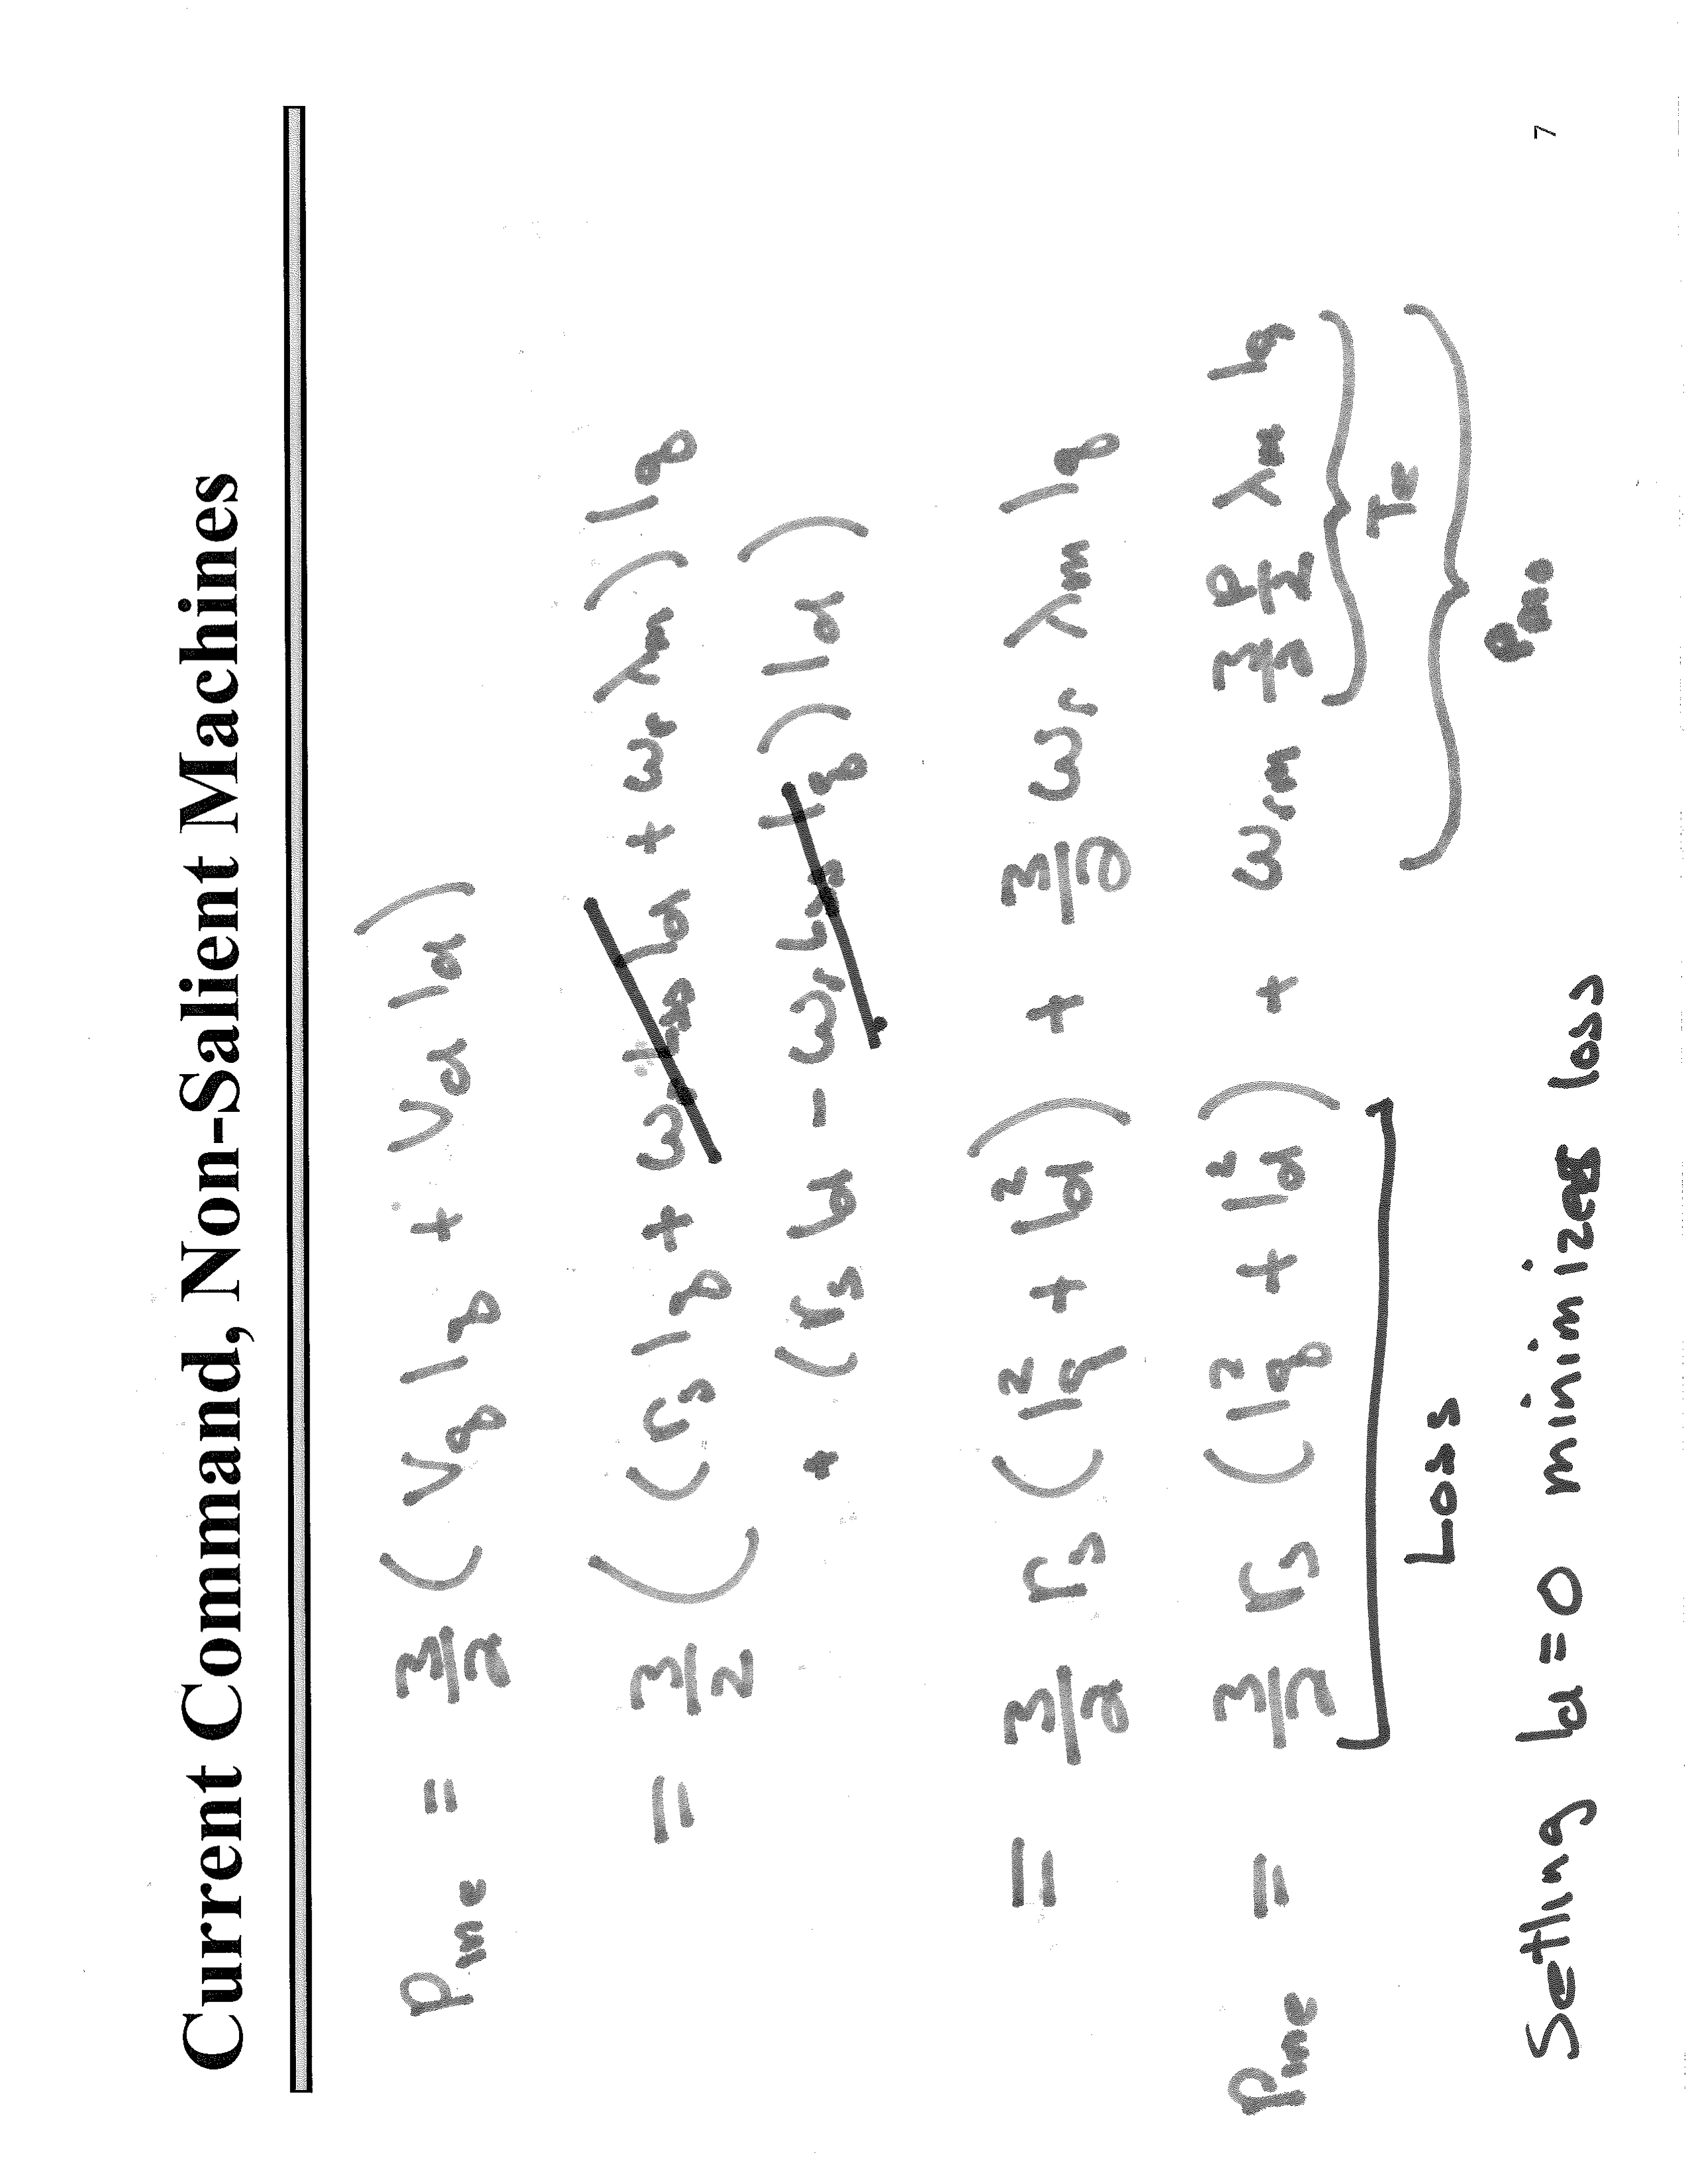 Current Command, Non-Salient Machines
Pme = 3/2 (Vq Iq + Vd Id)
= 3/2 ((rs Iq + ωr Lss Id + ωr λm) Iq
+ (rs Id - ωr Lss Iq) Id)
= 3/2 rs (Iq² + Id²) + 3/2 ωr λm Iq
Pme = 3/2 rs (Iq² + Id²) + ωrm 3/2 P/2 λm Iq
Loss
Te
Pmo
Setting Id = 0 minimizes loss
7